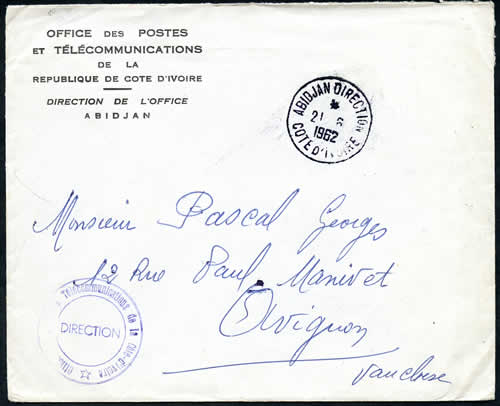 OFFICE DES POSTES
ET TÉLÉCOMMUNICATIONS
DE LA
REPUBLIQUE DE COTE D'IVOIRE
DIRECTION DE L'OFFICE
ABIDJAN
ABIDJAN DIRECTION
1962
COTE D'IVOIRE
Monsieur Pascal Georges
12 Rue Paul Manivet
Avignon
Vaucluse
Télécommunications de la Côte-d'Ivoire
DIRECTION